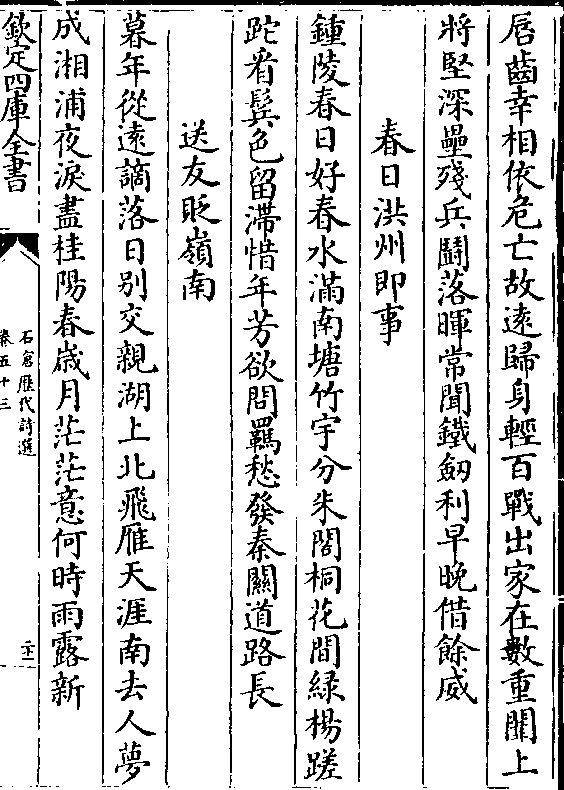 唇齒幸相依危亡故遠歸身輕百戰出家在數重圍上
將堅深壘殘兵鬭落暉常聞鐵劒利早晚借餘威
春日洪州即事
鍾陵春日好春水滿南塘竹宇分朱閣桐花間緑楊蹉
跎看鬂色留滯惜年芳欲問羇愁發秦關道路長
送友貶嶺南
暮年從遠謫落日别交親湖上北飛雁天涯南去人夢
成湘浦夜淚盡桂陽春歲月茫茫意何時雨露新
欽定四庫全書
石倉歷代詩選
卷五十三
二十一